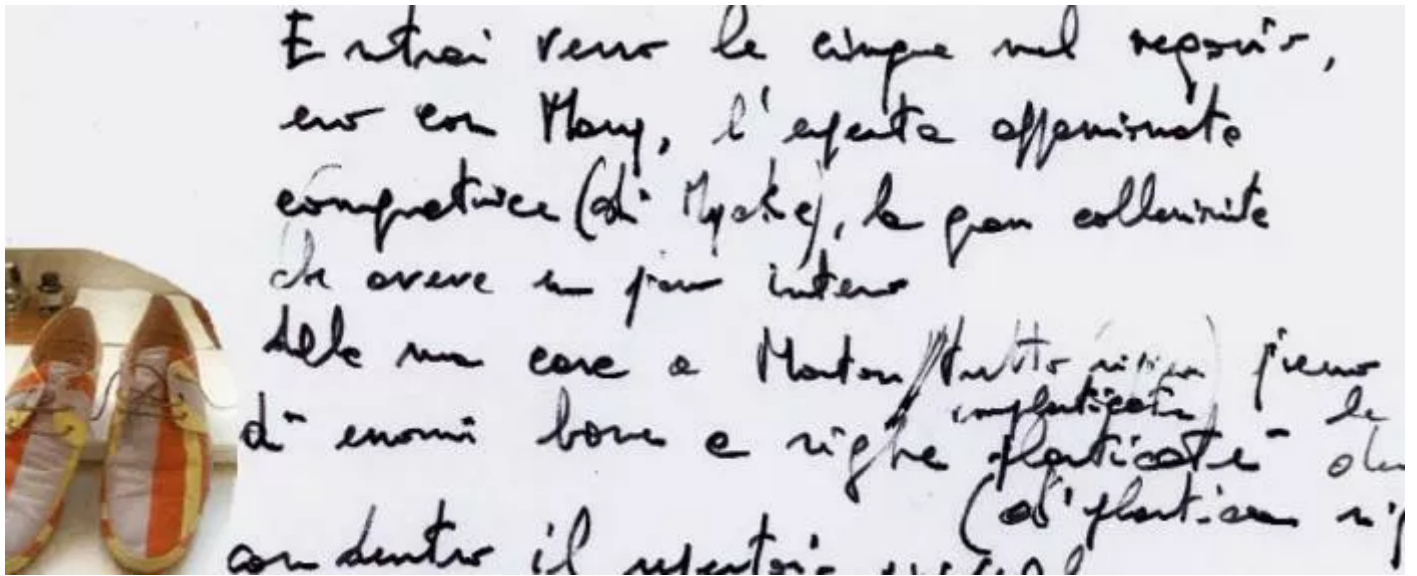 Entrai verso le cinque nel negozio,
ero con Mary, l'esperta appassionata
compratrice (di Miyake), la gran collezionista
che aveva un piano intero
della sua casa a Manton tutto pieno
di enormi borse a righe plasticate
(di plastica
con dentro il repertorio